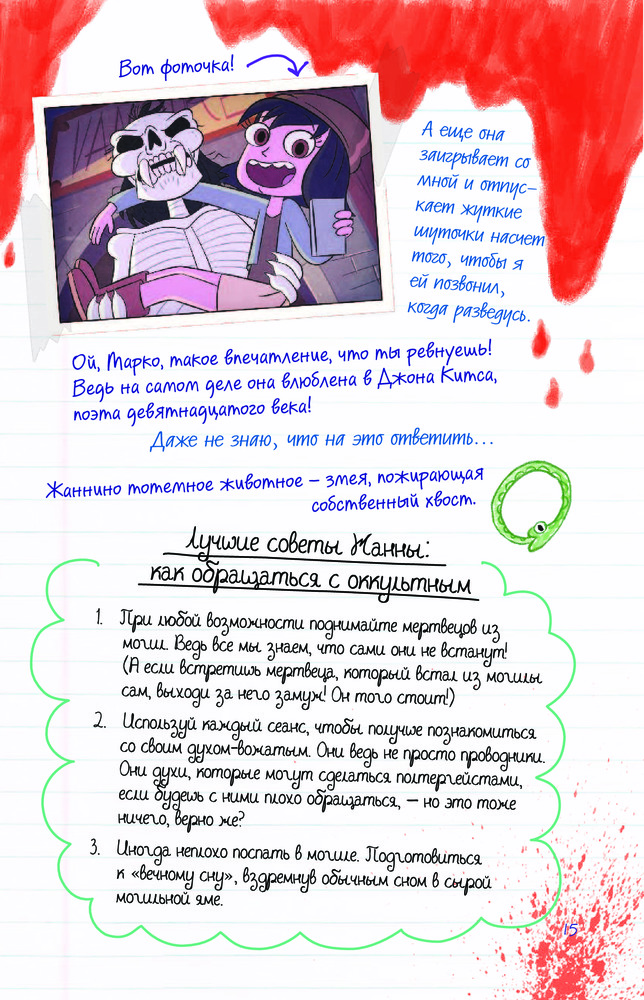 Вот фоточка!
А еще она
заигрывает со
мной и отпус-
кает жуткие
шуточки насчет
того, чтобы я
ей позвонил,
когда разведусь.
Ой, Марко, такое впечатление, что ты ревнуешь!
Ведь на самом деле она влюблена в Джона Китса,
поэта девятнадцатого века!
Даже не знаю, что на это ответить...
Жаннино тотемное животное – змея, пожирающая
собственный хвост.
Лучшие советы Жанны:
как обращаться с оккультным
1. При любой возможности поднимайте мертвецов из
могил. Ведь все мы знаем, что сами они не встанут!
(А если встретишь мертвеца, который встал из могилы
сам, выходи за него замуж! Он того стоит!)
2. Используй каждый сеанс, чтобы получше познакомиться
со своим духом-вожатым. Они ведь не просто проводники.
Они духи, которые могут сделаться полтергейстами,
если будешь с ними плохо обращаться, – но это тоже
ничего, верно же?
3. Иногда неплохо поспать в могиле. Подготовиться
к «вечному сну», вздремнув обычным сном в сырой
могильной яме.
15